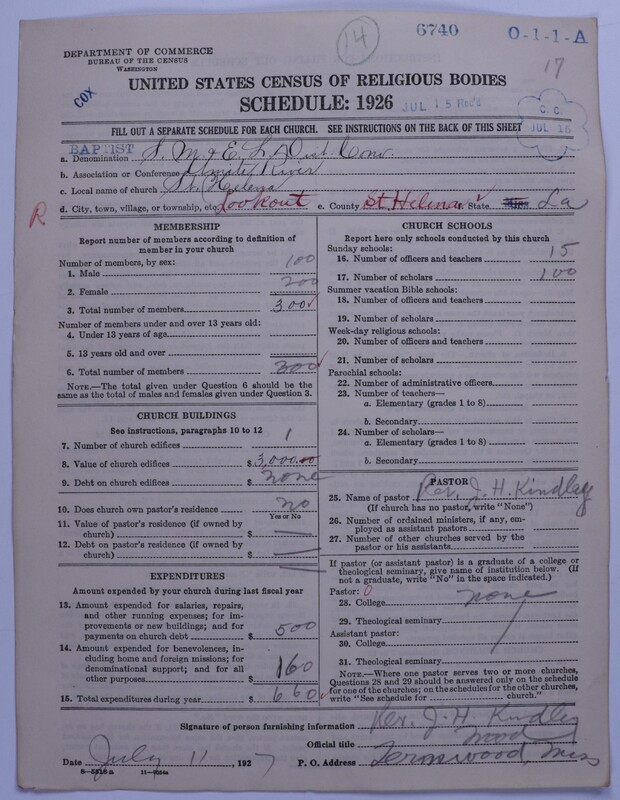 14
6740
O-1-1-A
17
DEPARTMENT OF COMMERCE
BUREAU OF THE CENSUS
WASHINGTON
COX
UNITED STATES CENSUS OF RELIGIOUS BODIES
SCHEDULE: 1926
JUL 15 Rec'd
C. C.
JUL 15
FILL OUT A SEPARATE SCHEDULE FOR EACH CHURCH. SEE INSTRUCTIONS ON THE BACK OF THIS SHEET
BAPTIST
a. Denomination S. M. & E. L. Dist. Conv.
b. Association or Conference River
c. Local name of church St. Helena
R
d. City, town, village, or township, etc. Lookout e. County St. Helena f. State Miss La
MEMBERSHIP
Report number of members according to definition of member in your church
Number of members, by sex:
1. Male 100
2. Female 200
3. Total number of members 300
Number of members under and over 13 years old:
4. Under 13 years of age
5. 13 years old and over
6. Total number of members 300
NOTE.—The total given under Question 6 should be the
same as the total of males and females given under Question 3.
CHURCH BUILDINGS
See instructions, paragraphs 10 to 12
7. Number of church edifices 1
8. Value of church edifices $ 3,000.00
9. Debt on church edifices $ none
10. Does church own pastor's residence no
Yes or No
11. Value of pastor's residence (if owned by
church) $
12. Debt on pastor's residence (if owned by
church) $
EXPENDITURES
Amount expended by your church during last fiscal year
13. Amount expended for salaries, repairs,
and other running expenses; for im-
provements or new buildings; and for
payments on church debt $ 500
14. Amount expended for benevolences, in-
cluding home and foreign missions; for
denominational support; and for all
other purposes $ 160
15. Total expenditures during year $ 660
CHURCH SCHOOLS
Report here only schools conducted by this church
Sunday schools:
16. Number of officers and teachers 15
17. Number of scholars 100
Summer vacation Bible schools:
18. Number of officers and teachers
19. Number of scholars
Week-day religious schools:
20. Number of officers and teachers
21. Number of scholars
Parochial schools:
22. Number of administrative officers
23. Number of teachers—
a. Elementary (grades 1 to 8)
b. Secondary
24. Number of scholars—
a. Elementary (grades 1 to 8)
b. Secondary
PASTOR
25. Name of pastor Rev. J. H. Kindley
(If church has no pastor, write "None")
26. Number of ordained ministers, if any, em-
ployed as assistant pastors
27. Number of other churches served by the
pastor or his assistants
If pastor (or assistant pastor) is a graduate of a college or
theological seminary, give name of institution below. (If
not a graduate, write "No" in the space indicated.)
Pastor: 0
28. College none
29. Theological seminary
Assistant pastor:
30. College
31. Theological seminary
NOTE.—Where one pastor serves two or more churches,
Questions 28 and 29 should be answered only on the schedule
for one of the churches; on the schedules for the other churches,
write "See schedule for church."
Signature of person furnishing information Rev. J. H. Kindley
Official title
Date July 11, 1927 P. O. Address Fernwood, Miss
8-5518a 11-9554a